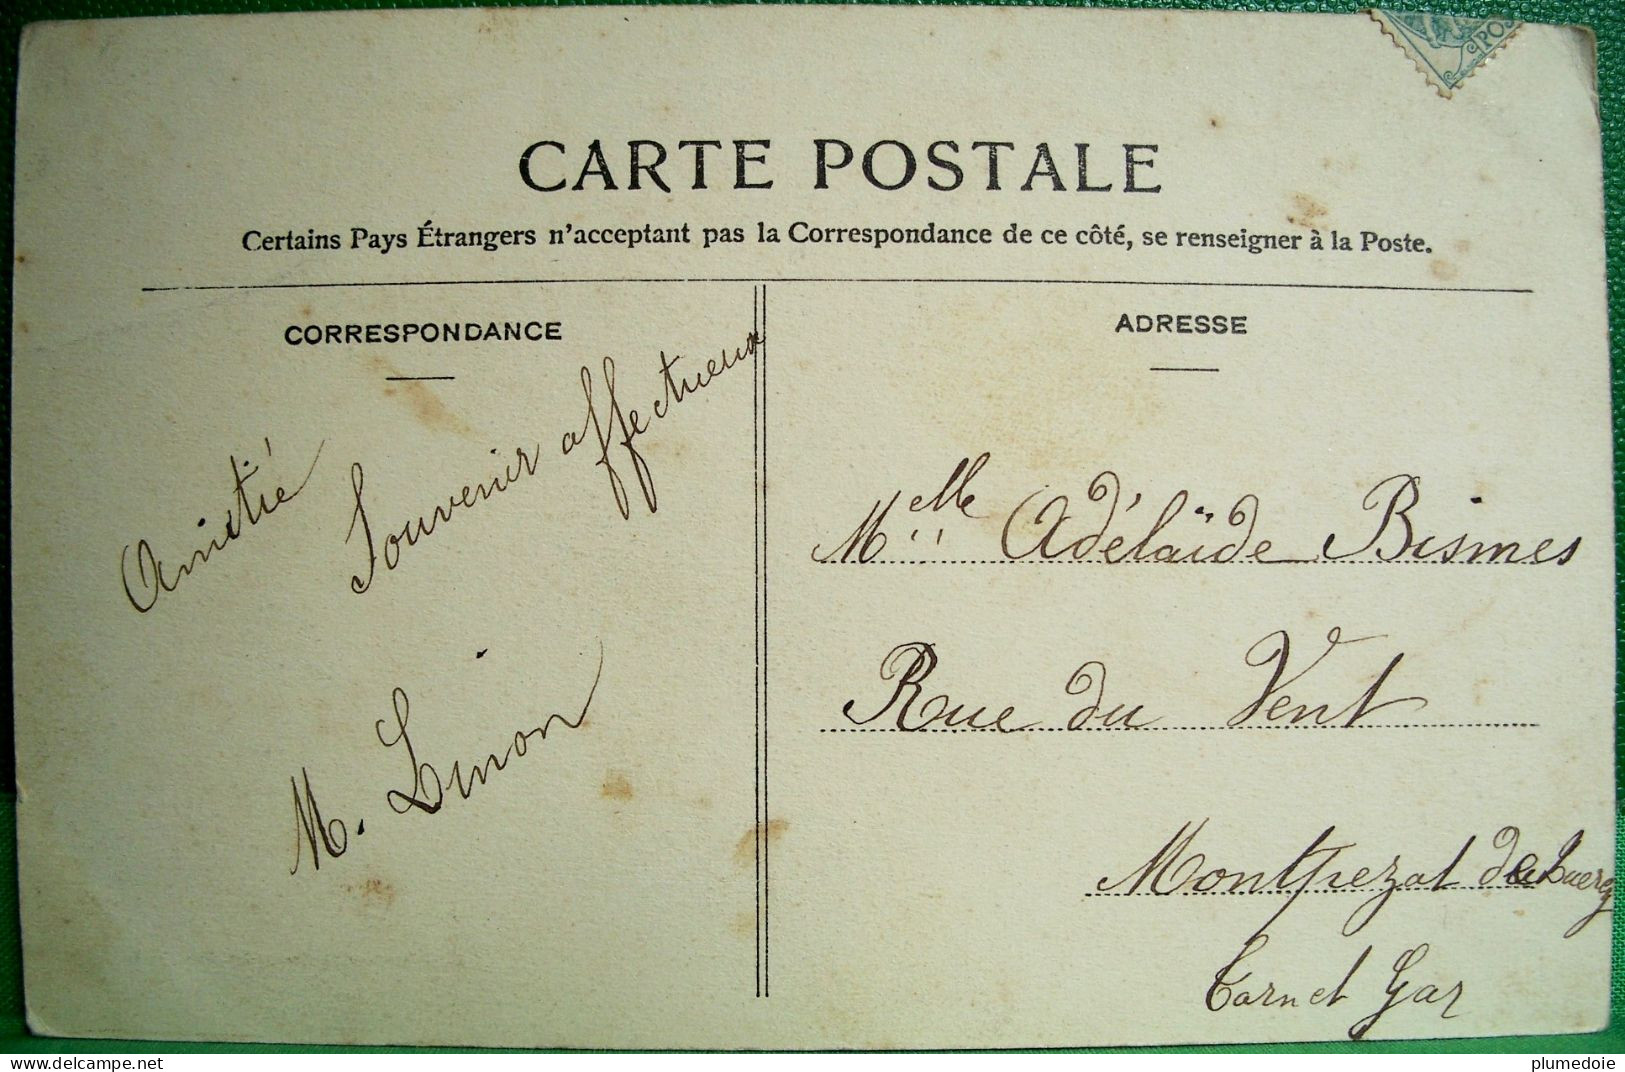 POS
CARTE POSTALE
Certains Pays Étrangers n'acceptant pas la Correspondance de ce côté, se renseigner à la Poste.
CORRESPONDANCE
Amitié
Souvenir affectueux
M. Linon
ADRESSE
Melle Adélaïde Bismes
Rue du Vent
Montpezat de Quercy
Tarn et Gar
plumedoie